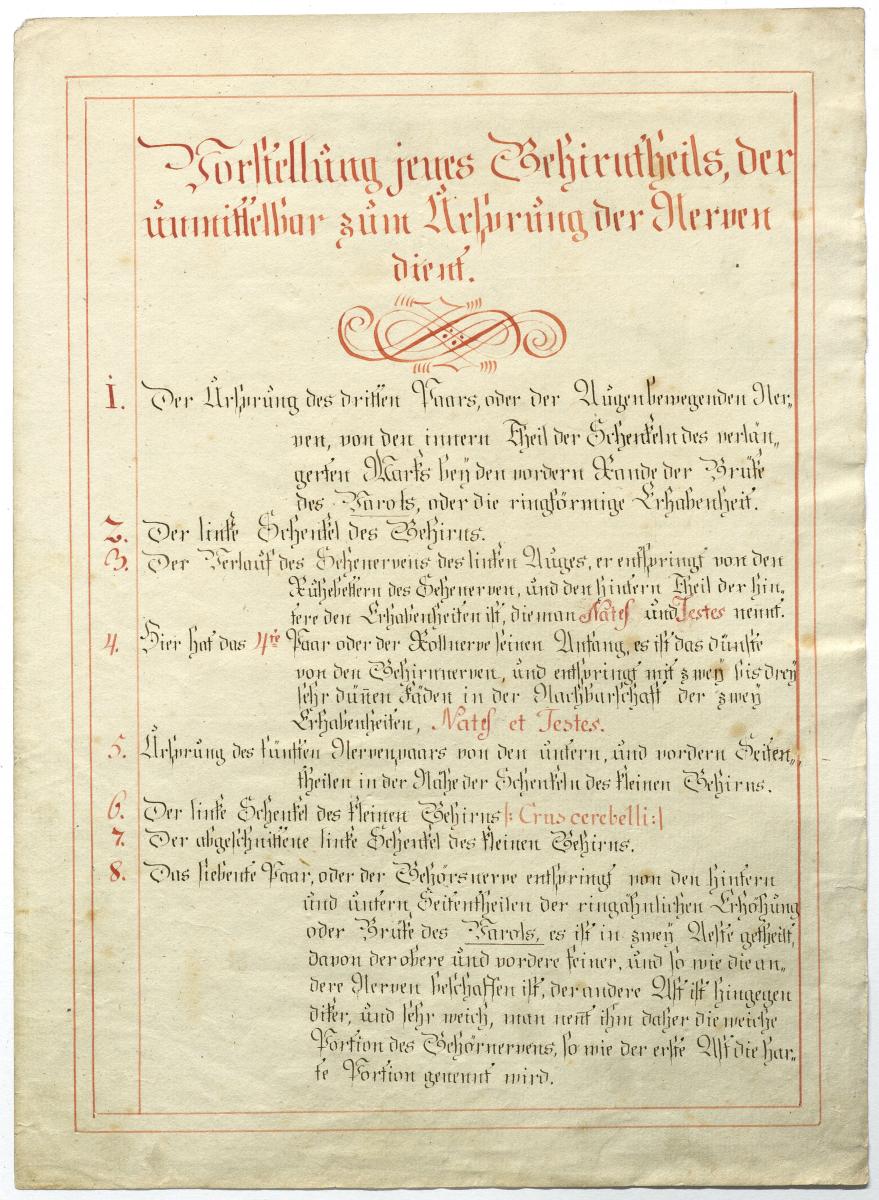 Vorstellung jenes Gehirntheils, der
unmittelbar zum Ursprung der Nerven
dient.
1. Der Ursprung des dritten Paars, oder der Augenbewegenden Ner„
ven, von den innern Theil der Schenkeln des verlän„
gerten Marks beÿ den vordern Rande der Brüke
des Varols, oder die ringförmige Erhabenheit.
2. Der linke Schenkel des Gehirns.
3. Der Verlauf des Sehenervens des linken Auges, er entspringt von den
Ruhebettern des Sehenerven, und den hintern Theil der hin„
tere den Erhabenheiten ist, die man Nates und Testes nennt.
4. Hier hat das 4te Paar oder der Rollnerve seinen Anfang, es ist das dünste
von den Gehirnnerven, und entspringt mit zweÿ bis dreÿ
sehr dün̄en Fäden in der Nachbarschaft der zweÿ
Erhabenheiten, Nates et Testes.
5. Ursprung des fünften Nervenpaars von den untern, und vordern Seiten„
theilen in der Nähe der Schenkeln des kleinen Gehirns.
6. Der linke Schenkel des kleinen Gehirns |: Crus cerebelli :|
7. Der abgeschnittene linke Schenkel des kleinen Gehirns.
8. Das siebente Paar, oder der Gehörsnerve entspringt von den hintern
und untern Seitentheilen der ringähnlichen Erhöhung
oder Brüke des Varols, es ist in zweÿ Aeste getheilt,
davon der obere und vordere feiner, und so wie die an„
dere Nerven beschaffen ist, der andere Ast ist hingegen
diker, und sehr weich, man nen̄t ihm daher die weiche
Portion des Gehörnervens, so wie der erste Ast die har„
te Portion genennt wird.